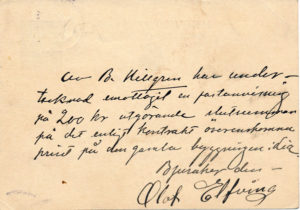 av B. Hillgren har under-
tecknad emottagit en postanvisning
på 200 kr utgörande slutsumman
på det enligt kontrakt överenskomna
priset på den gamla byggningen i
Bjuråker den —
Olof Elfving